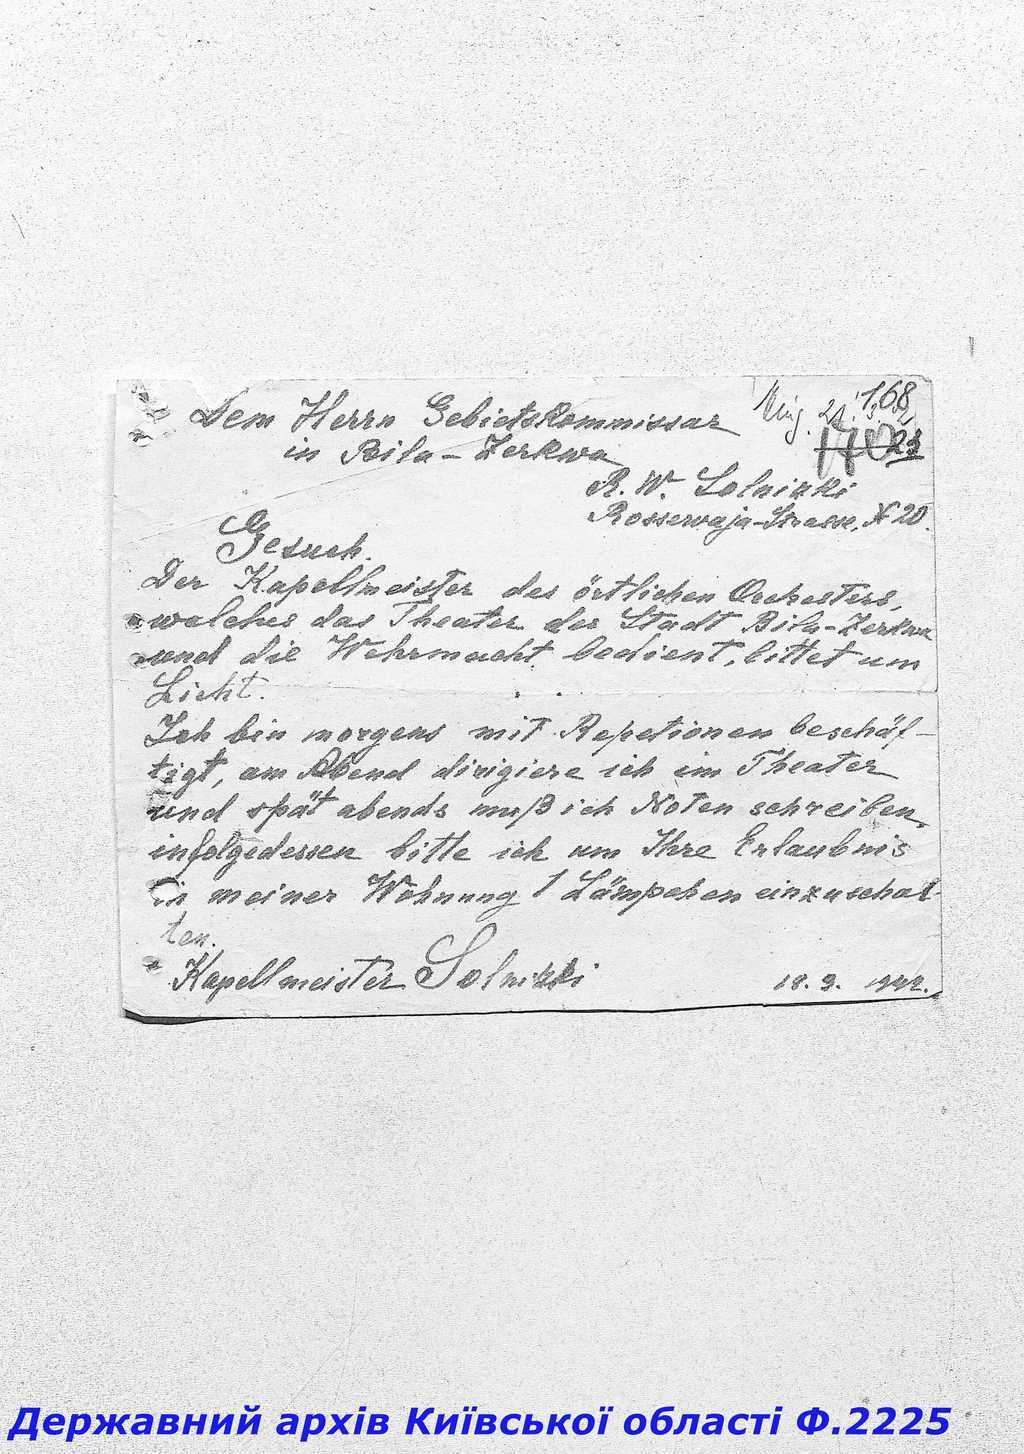 168
21.3.
170 23
Dem Herrn Gebietskommissar
in Bila-Zerkwa
R. W. Solnizki
Rosserwaja-Strasse, № 20.
Gesuch.
Der Kapellmeister des örtlichen Orchesters,
welches das Theater der Stadt Bila-Zerkwa
und die Wehrmacht bedient, bittet um
Licht.
Ich bin morgens mit Repetionen beschäf-
tigt, am Abend dirigiere ich im Theater
und spät abends muß ich Noten schreiben,
infolgedessen bitte ich um Ihre Erlaubnis
in meiner Wohnung 1 Lämpchen einzuschal-
ten.
Kapellmeister Solnizki 18. 3. 1942.
Державний архів Київської області Ф.2225